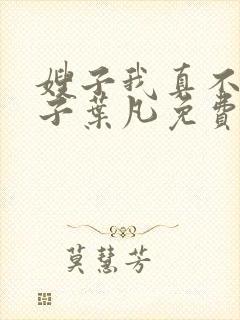 嫂子我真不
子葉凡免費
莫慧芳